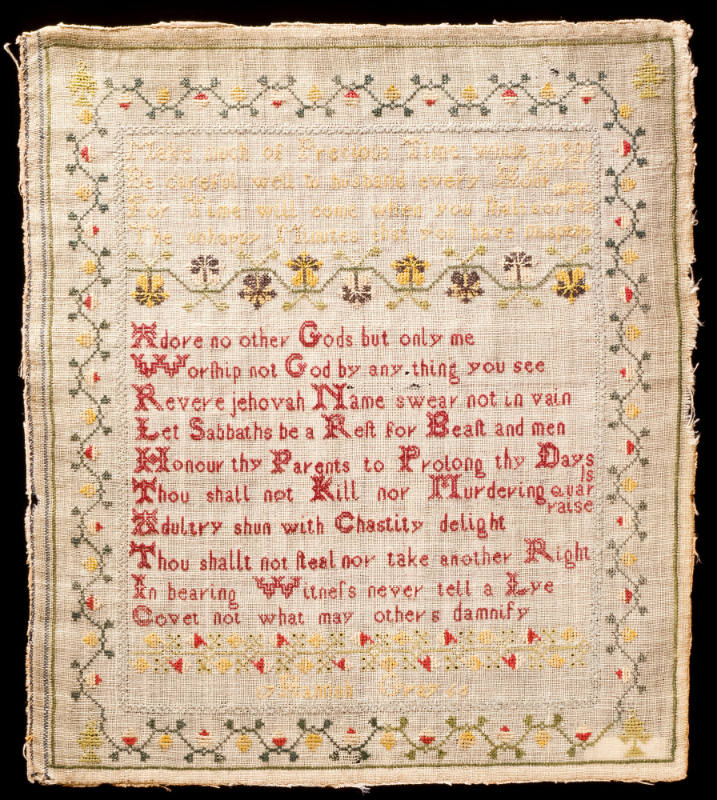 Make Much of Precious Time while in your
Be careful well to husband every Hour
For Time will come when you
The unhappy Minutes that you have
Adore no other Gods but only me
Worſhip not God by any thing you see
Revere jehovah Name swear not in vain
Let Sabbaths be a Reſt for Beaſt and men
Honour thy Parents to Prolong thy Days
Thou shall not Kill nor Murdering quar
is
raise
Adultry shun with Chastity delight
Thou shallt not ſteal nor take another Right
In bearing Witneſs never tell a Lye
Covet not what may others damnify